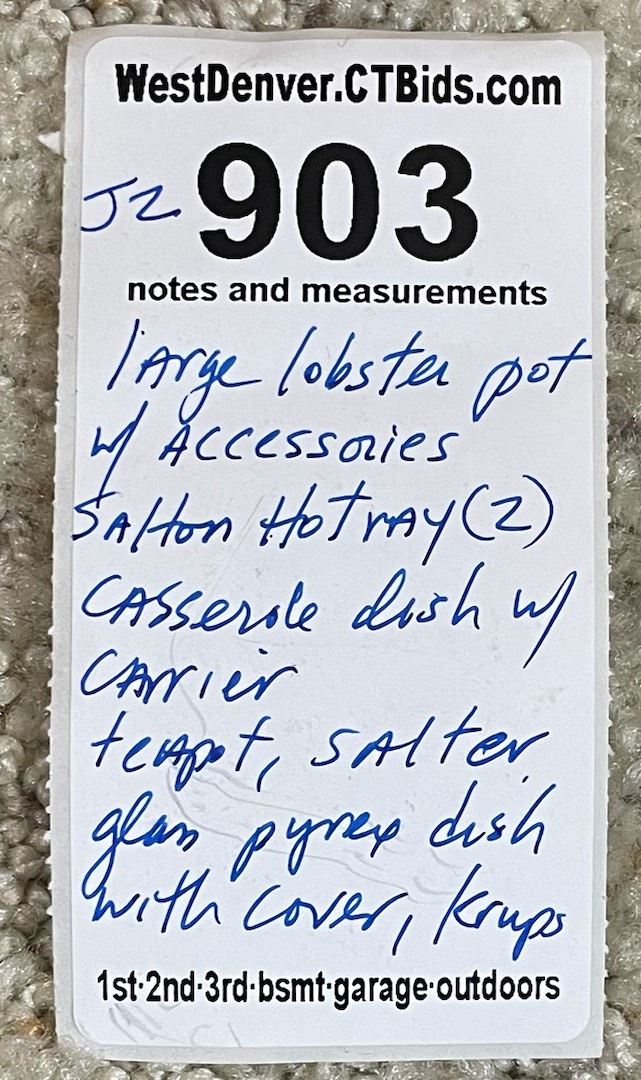 WestDenver.CTBids.com
JZ 903
notes and measurements
large lobster pot
w/ Accessories
Salton Hotray (2)
Casserole dish w/
Carrier
teapot, salter
glass pyrex dish
with cover, Krups
1st·2nd·3rd·bsmt·garage·outdoors